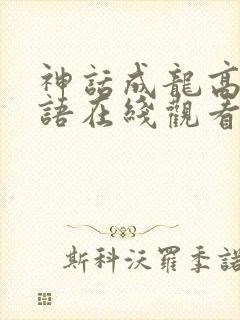 神話成龍高
語在綫觀看
斯科沃羅季諾